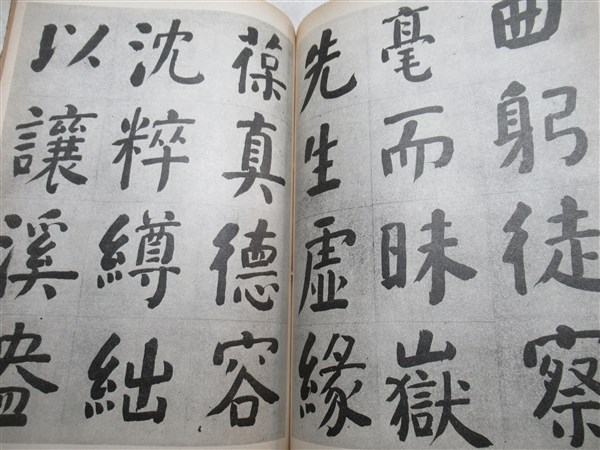 曲躬徒察
毫而昧嶽
先生虛緣
葆真德容
沈粹繜絀
以讓溪盎